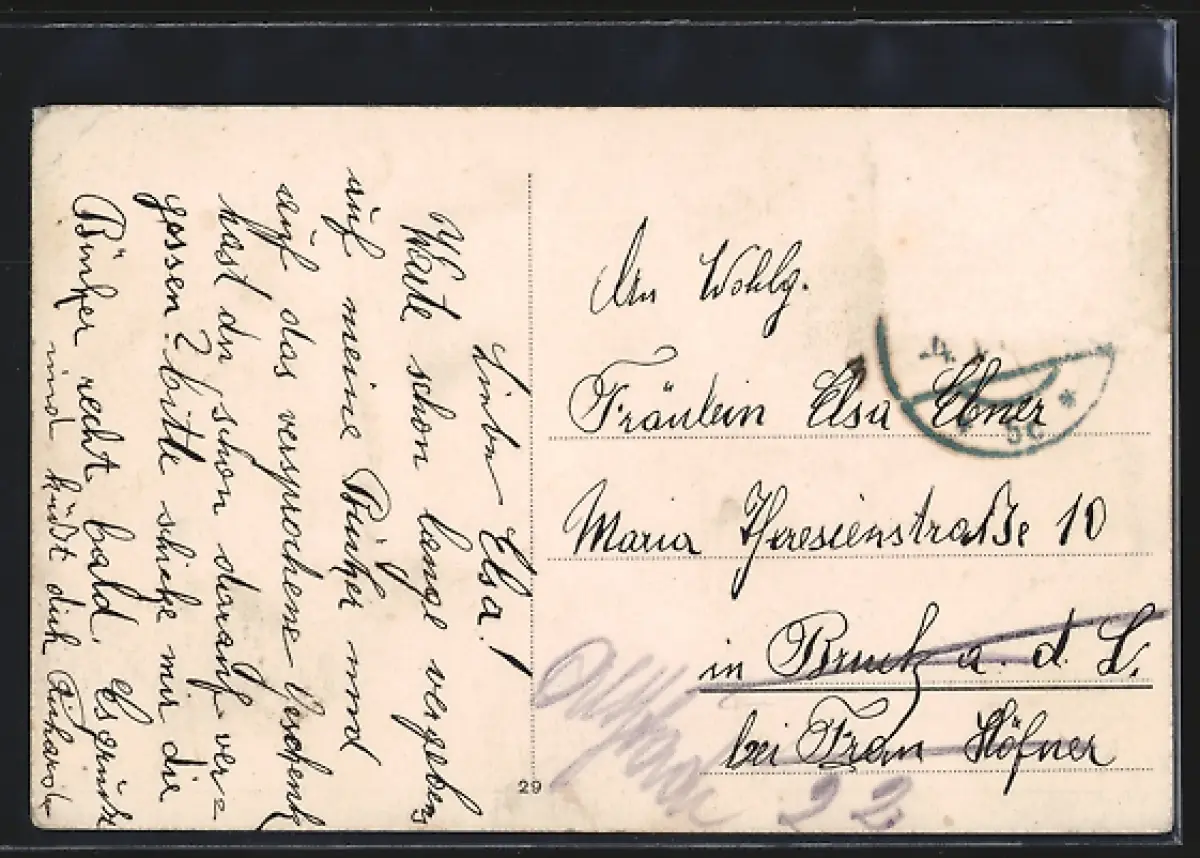 Liebe Elsa!
Warte schon lange vergebens
auf meine Bücher und
auf das versprochene Geschenk
hast du schon darauf ver=
gessen? bitte schicke mir die
Bücher recht bald. Es grüßt
und küßt dich
An Wohlg.
Fräulein Elsa Ebner
Maria Theresienstraße 10
in Bruck a. d. L.
bei Frau Höfner
22
29
-4.